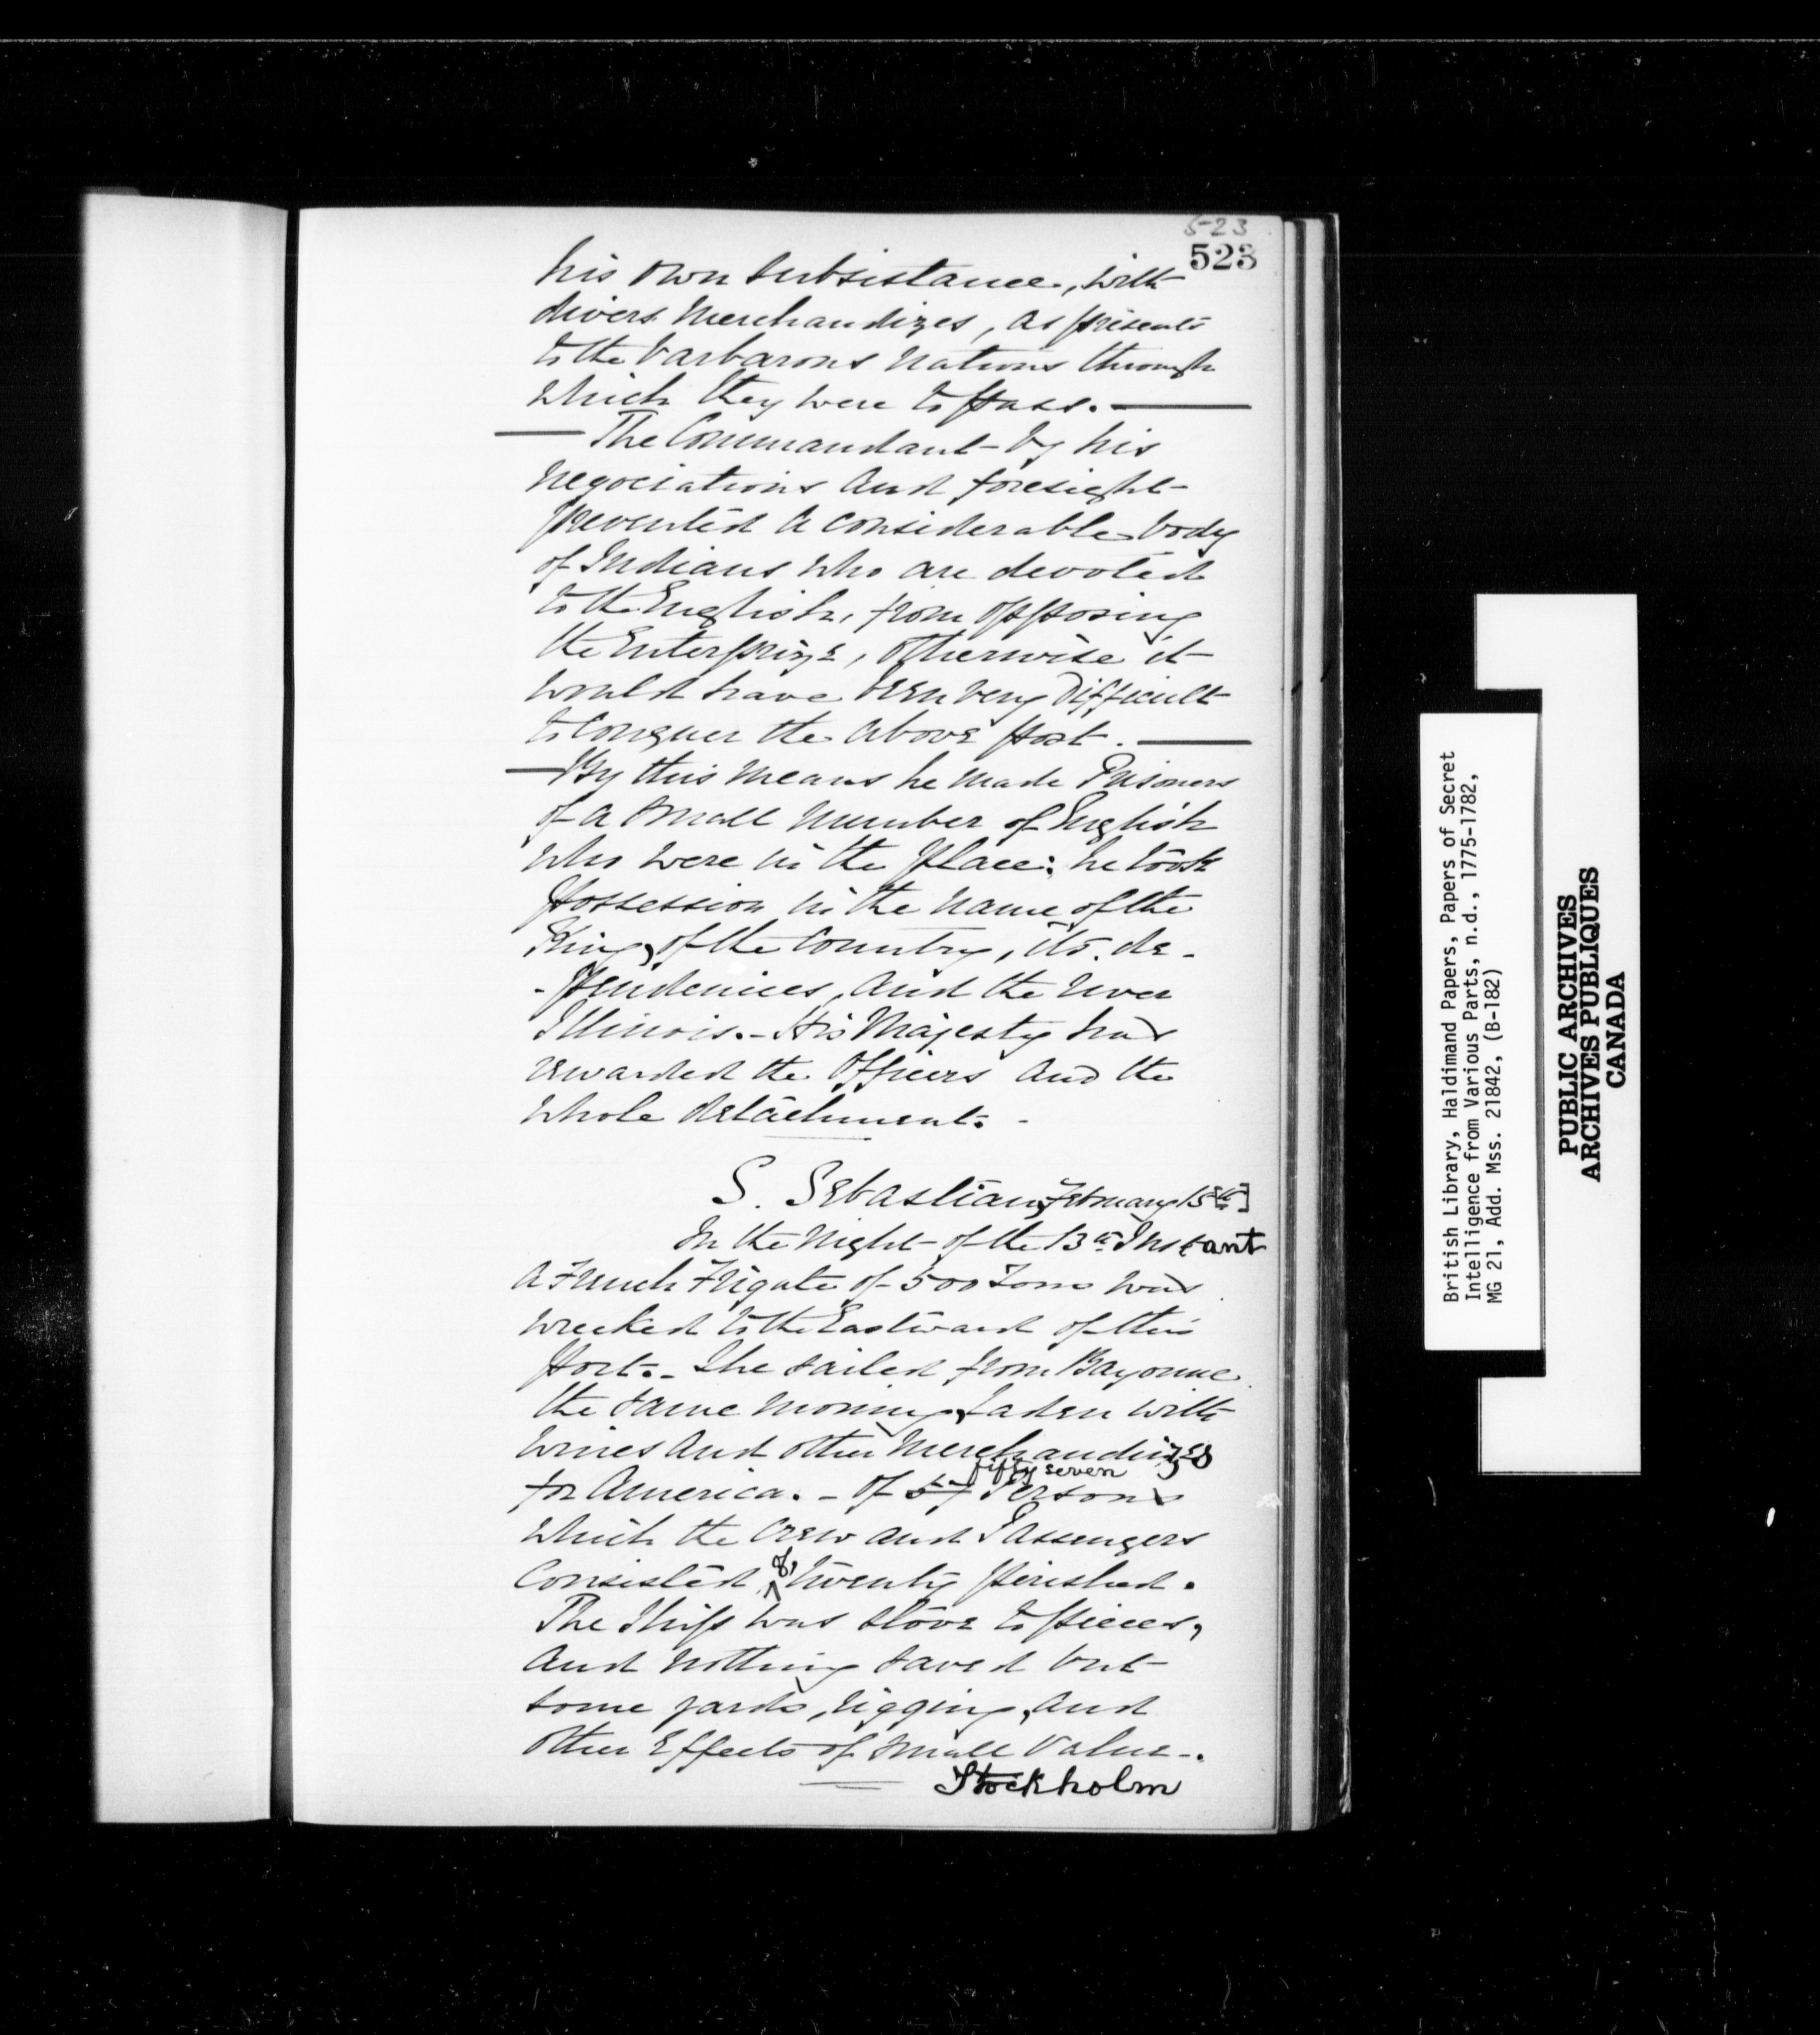 523
523
his own subsistance, with
divers Merchandizes, as presents
to the barbarous Nations through
which they were to pass. —
— The Commandant by his
Negociations and foresight
prevented a considerable body
of Indians who are devoted
to the English, from opposing
the Enterprize, otherwise it
would have been very difficult
to Conquer the above post. —
— By this means he made Prisoners
of a small Number of English
who were in the place; he took
possession in the name of the
King, of the Country, its de-
-pendencies, and the river
Illinois. - His Majesty has
rewarded the Officers and the
whole detachment. -
S. Sebastian, February 15th]
In the Night of the 13th Instant
a French Frigate of 500 Tons was
wrecked to the Eastward of this
Port. - She sailed from Bayonne
the same morning, Laden with
Wines and other Merchandizes
fifty seven
for America. - Of 57 Persons
which the Crew and Passengers
Consisted of, twenty perished.
The Ship was stove to pieces,
and nothing saved but
some yards, rigging, and
other Effects of small Value -.
Stockholm
British Library, Haldimand Papers, Papers of Secret
Intelligence from Various Parts, n.d., 1775-1782,
MG 21, Add. Mss. 21842, (B-182)
PUBLIC ARCHIVES
ARCHIVES PUBLIQUES
CANADA